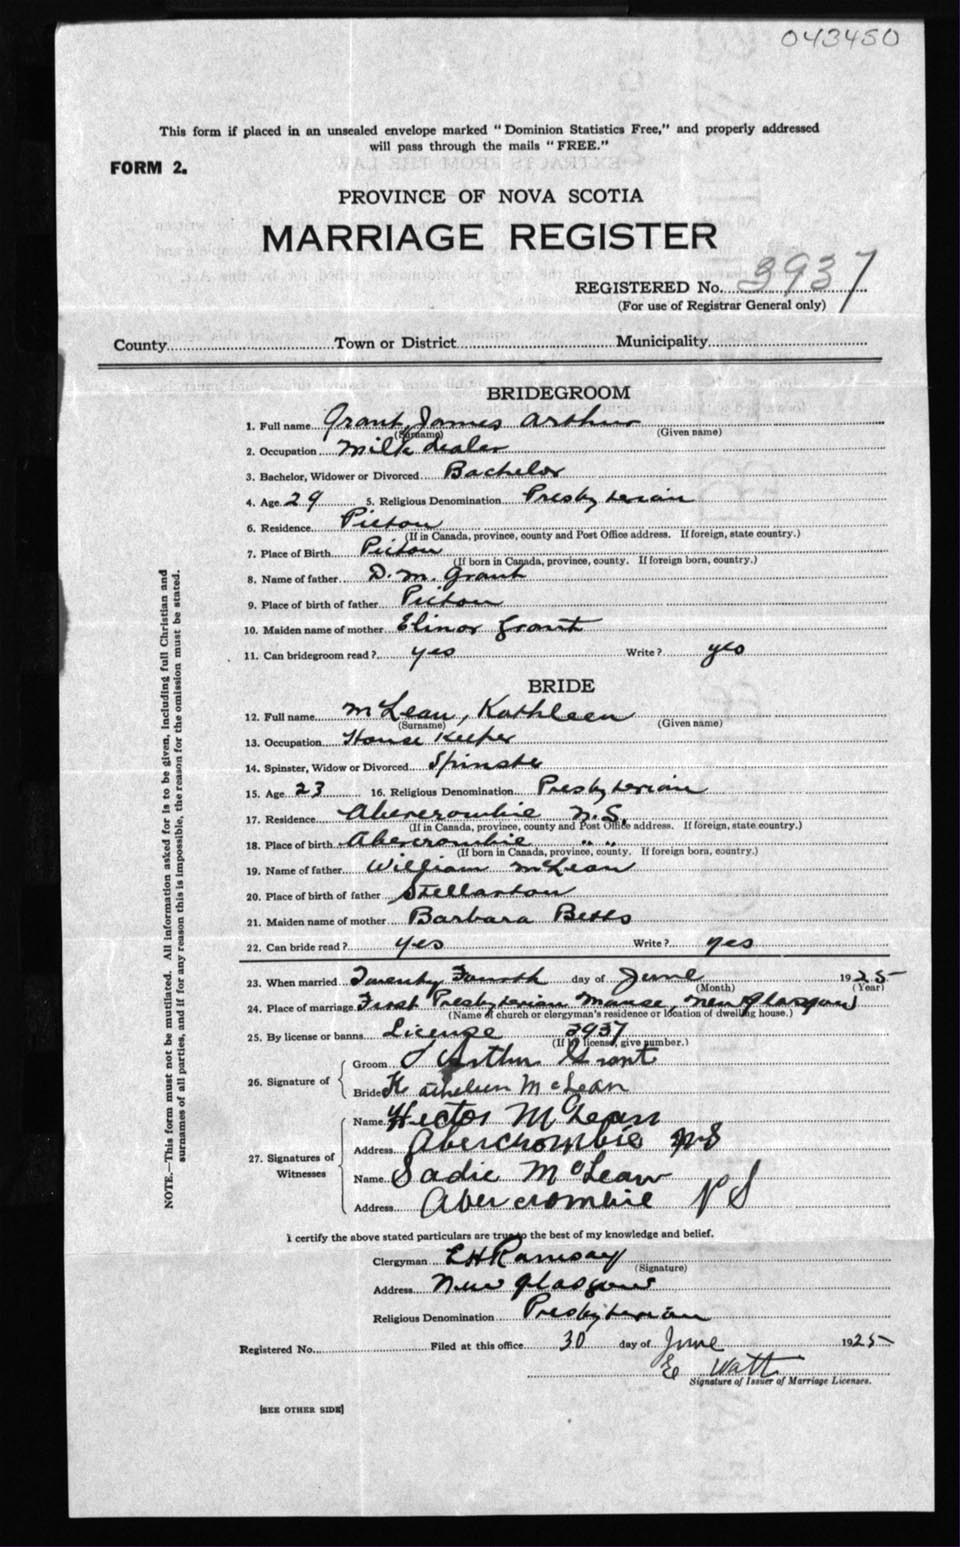 043450
This form if placed in an unsealed envelope marked "Dominion Statistics Free," and properly addressed
will pass through the mails "FREE."
FORM 2.
PROVINCE OF NOVA SCOTIA
MARRIAGE REGISTER
REGISTERED No. 3937
(For use of Registrar General only)
County Town or District Municipality
BRIDEGROOM
1. Full name Grant, James Arthur
(Surname) (Given name)
2. Occupation Milk dealer
3. Bachelor, Widower or Divorced Bachelor
4. Age 29 5. Religious Denomination Presbyterian
6. Residence Pictou
(If in Canada, province, county and Post Office address. If foreign, state country.)
7. Place of Birth Pictou
(If born in Canada, province, county. If foreign born, country.)
8. Name of father D. M. Grant
9. Place of birth of father Pictou
10. Maiden name of mother Elinor Grant
11. Can bridegroom read? yes Write? yes
BRIDE
12. Full name McLean, Kathleen
(Surname) (Given name)
13. Occupation House Keeper
14. Spinster, Widow or Divorced Spinster
15. Age 23 16. Religious Denomination Presbyterian
17. Residence Abercrombie N.S.
(If in Canada, province, county and Post Office address. If foreign, state country.)
18. Place of birth Abercrombie " "
(If born in Canada, province, county. If foreign born, country.)
19. Name of father William McLean
20. Place of birth of father Stellarton
21. Maiden name of mother Barbara Betts
22. Can bride read? yes Write? yes
23. When married Twenty Fourth day of June 1925
(Month) (Year)
24. Place of marriage First Presbyterian Manse New Glasgow
(Name of church or clergyman's residence or location of dwelling house.)
25. By license or banns License 3937
(If by license, give number.)
26. Signature of Groom J Arthur Grant
Bride Kathleen McLean
27. Signatures of Witnesses Name Hector McLean
Address Abercrombie NS
Name Sadie McLean
Address Abercrombie NS
I certify the above stated particulars are true to the best of my knowledge and belief.
Clergyman E H Ramsay
(Signature)
Address New Glasgow
Religious Denomination Presbyterian
Registered No. Filed at this office 30 day of June 1925
E Watt
Signature of Issuer of Marriage Licenses.
[SEE OTHER SIDE]
NOTE.—This form must not be mutilated. All information asked for is to be given, including full Christian and
surnames of all parties, and if for any reason this is impossible, the reason for the omission must be stated.